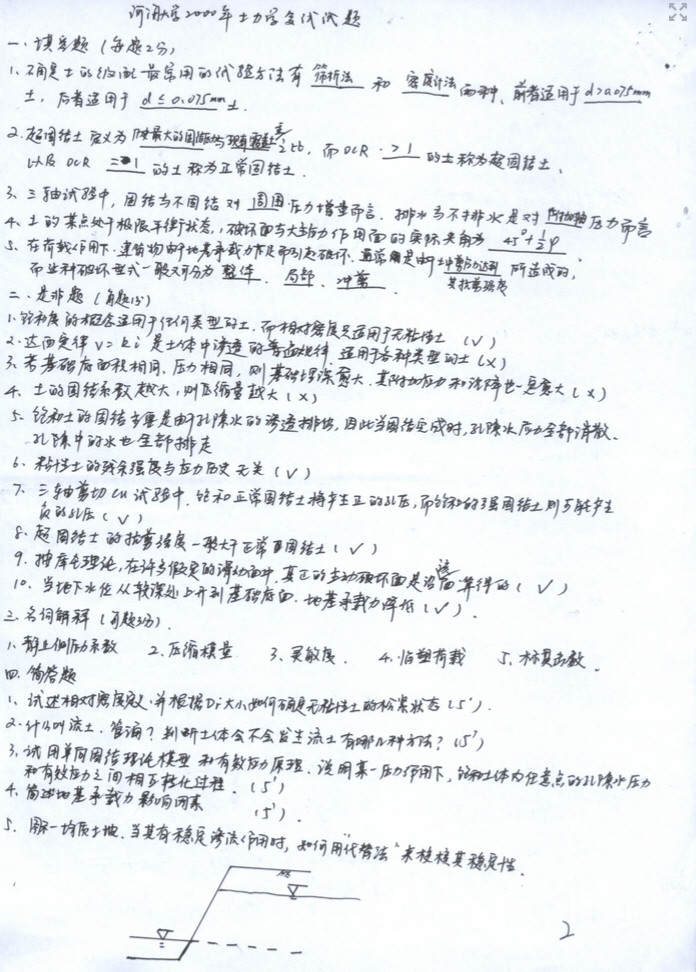 河海大学2000年土力学复试试题
一、填空题（每题2分）
1、确定土的级配最常用的试验方法有 筛析法 和 密度计法 两种、前者适用于d>0.075mm
土，后者适用于 d≤0.075mm 土.
2、超固结土定义为 与现有覆盖 之比，而OCR >1 的土称为超固结土、
以及OCR =1 的土称为正常固结土.
3、三轴试验中，固结与不固结对 周围 压力增量而言. 排水与不排水是对 附加轴 压力而言
4、土的某点处于极限平衡状态，破坏面与大主应力作用面的实际夹角为 45°+½φ .
5、在荷载作用下、建筑物由于地基承载力不足而引起破坏、通常是由于 剪应力达到 所造成的,
其抗剪强度
而此种破坏型式一般又可分为 整体、局部、冲剪.
二、是非题（每题1分）
1、饱和度的概念适用于任何类型的土. 而相对密度只适用于无粘性土 (√)
2、达西定律 v=ki 是土体中渗透的普遍规律. 适用于各种类型的土 (×)
3、若基础底面积相同、压力相同，则基础埋深愈大、其附加应力和沉降也愈大 (×)
4、土的固结系数越大，则压缩量越大 (×)
5、饱和土的固结主要是由于孔隙水的渗透排出，因此当固结完成时，孔隙水应力全部消散、
孔隙中的水也全部排走
6、粘性土的残余强度与应力历史无关 (√)
7、三轴剪切CU试验中、饱和正常固结土将产生正的孔压，而饱和的强固结土则可能产生
负的孔压 (√)
8、超固结土的抗剪强度一般大于正常固结土 (√)
9、按库仑理论，在许多假定的滑动面中、真正的主动破坏面是沿该面算得的 (√)
10、当地下水位从较深处上升到基础底面、地基承载力降低 (√).
三、名词解释（每题3分）.
1、静止侧压力系数 2、压缩模量 3、灵敏度. 4、临塑荷载 5、标贯击数.
四、简答题
1、试述相对密度定义、并根据Dr大小如何确定无粘性土的松密状态 (5').
2、什么叫流土、管涌？判断土体会不会发生流土有哪几种方法？(5')
3、试用单向固结理论模型和有效应力原理、说明某一压力作用下，饱和土体内任意点的孔隙水压力
和有效应力之间相互转化过程. (5')
4、简述地基承载力影响因素 (5').
5、图示一均质土坡、当其有稳定渗流作用时，如何用“代替法”来校核其稳定性.
2